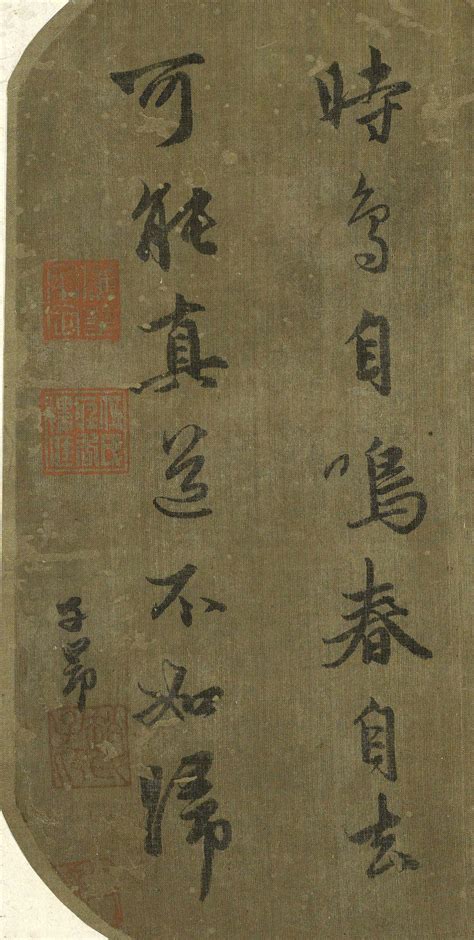 時鳥自鳴春自去
可能真道不如歸
子昂